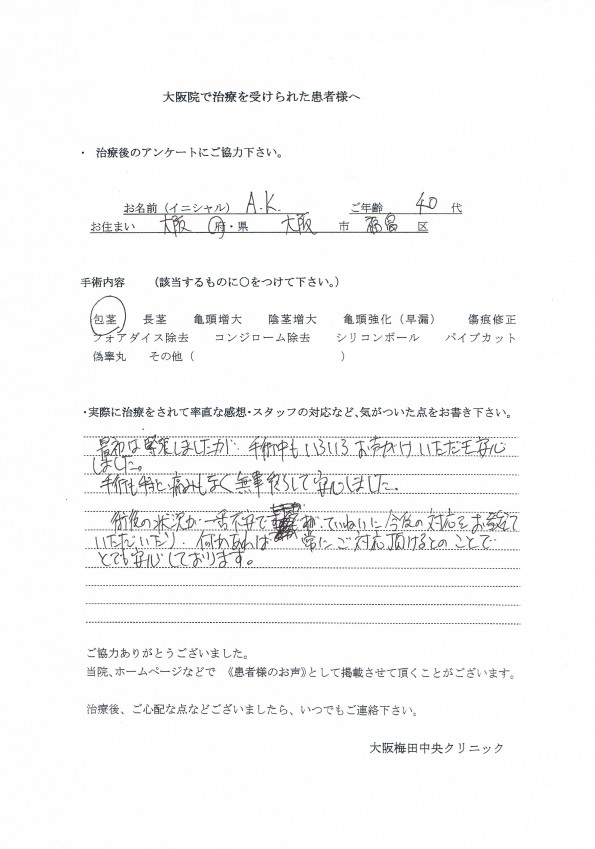 大阪院で治療を受けられた患者様へ
・ 治療後のアンケートにご協力下さい。
お名前（イニシャル） A.K. ご年齢 40 代
お住まい 大阪 府・県 大阪 市 福島 区
手術内容 （該当するものに〇をつけて下さい。）
包茎 長茎 亀頭増大 陰茎増大 亀頭強化（早漏） 傷痕修正
フォアダイス除去 コンジローム除去 シリコンボール パイプカット
偽睾丸 その他（ ）
・実際に治療をされて率直な感想・スタッフの対応など、気がついた点をお書き下さい。
最初は緊張しましたが 手術中もいろいろお声がけいただき安心
しました。
手術も 痛みもなく無事終了して安心しました。
術後の状況が一番不安で が、ていねいに今後の対応をお教えて
いただいたり、何かあれば 常にご対応頂けるとのことで
とても安心しております。
ご協力ありがとうございました。
当院、ホームページなどで 《患者様のお声》として掲載させて頂くことがございます。
治療後、ご心配な点などございましたら、いつでもご連絡下さい。
大阪梅田中央クリニック